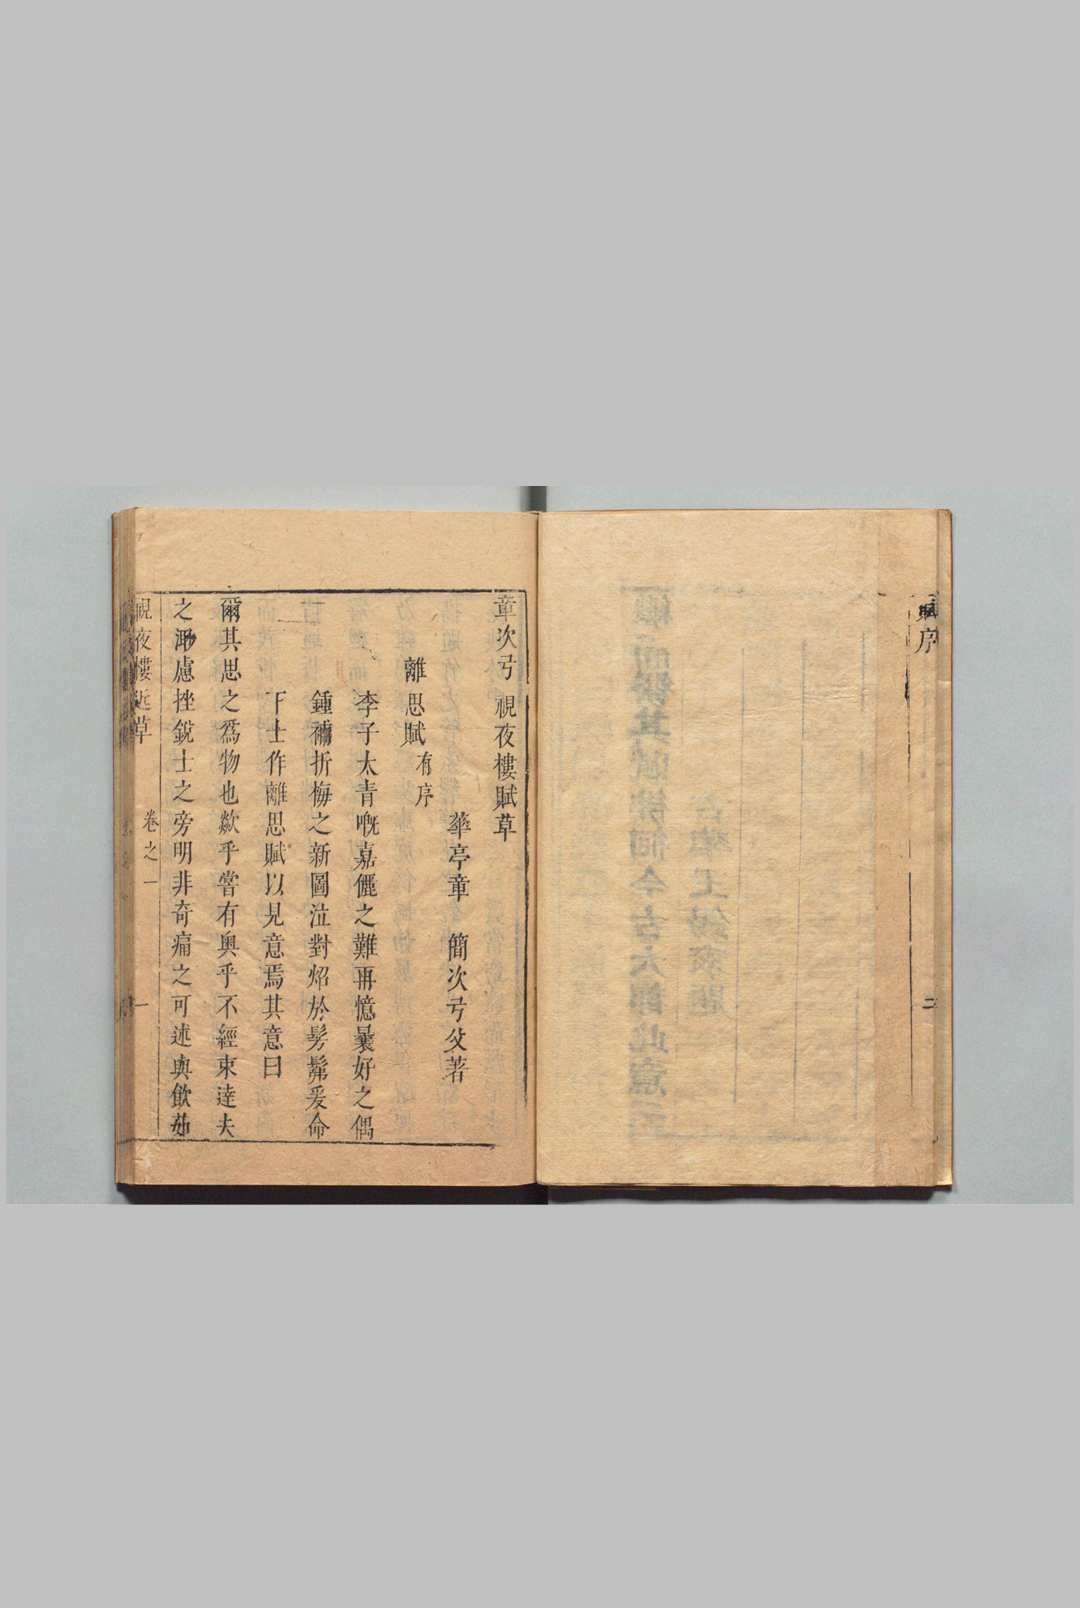 賦序
二
章次弓視夜樓賦草
華亭章 簡次弓父著
離思賦有序
李子太青嘅嘉儷之難再憶曩好之偶
鍾禰折悔之新圖泣對炤於髣髴爰命
下士作離思賦以見意焉其意曰
爾其思之爲物也歘乎嘗有奥乎不經束達夫
之 慮挫銳士之旁明非奇痛之可述與飲茹
視夜樓近草
卷之一
一